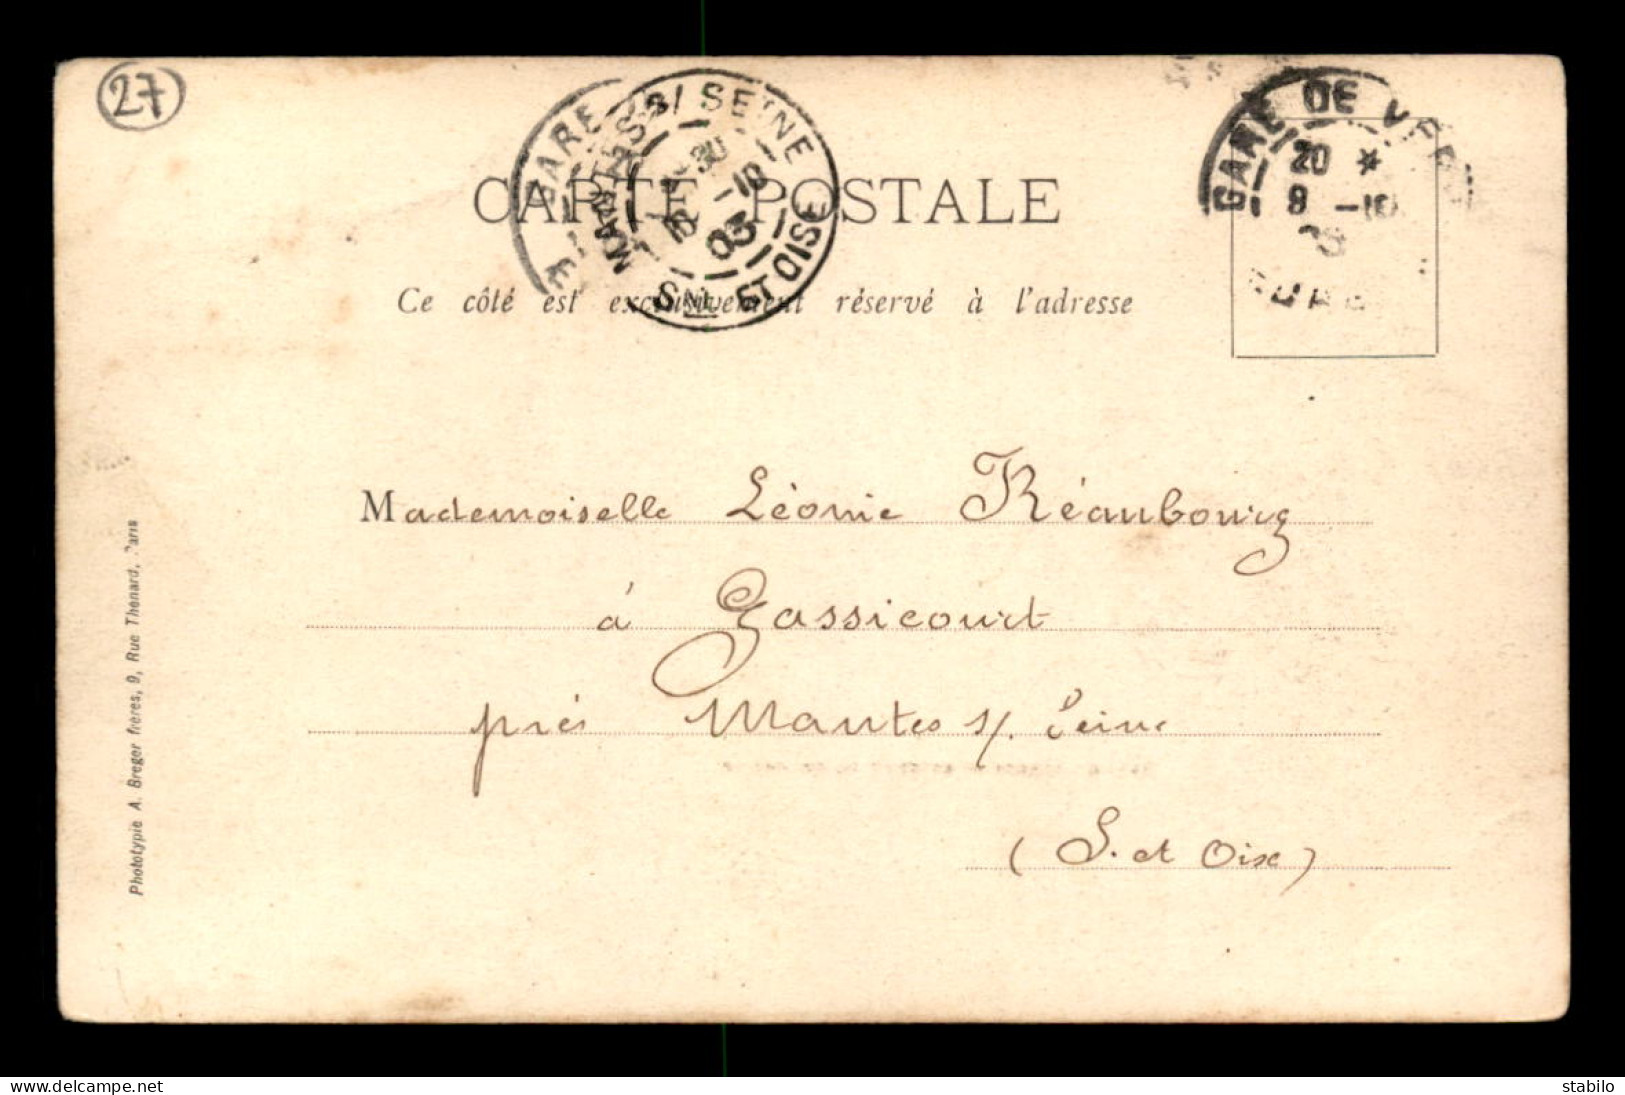 27
GARE
MANTES S/ SEINE
30
10 -10
03
SNE ET OISE
GARE DE
20 *
8 -10
EURE
CARTE POSTALE
Ce côté est exclusivement réservé à l'adresse
Mademoiselle Léonie Réaubourg
à Gassicourt
près Mantes s/. Seine
(S. et Oise)
Phototypie A. Breger frères, 9, Rue Thenard, Paris
delcampe.net
stabilo